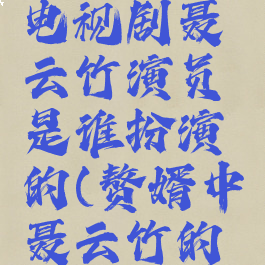 电视剧聂
云竹演员
是谁扮演
的(赘婿中
聂云竹的